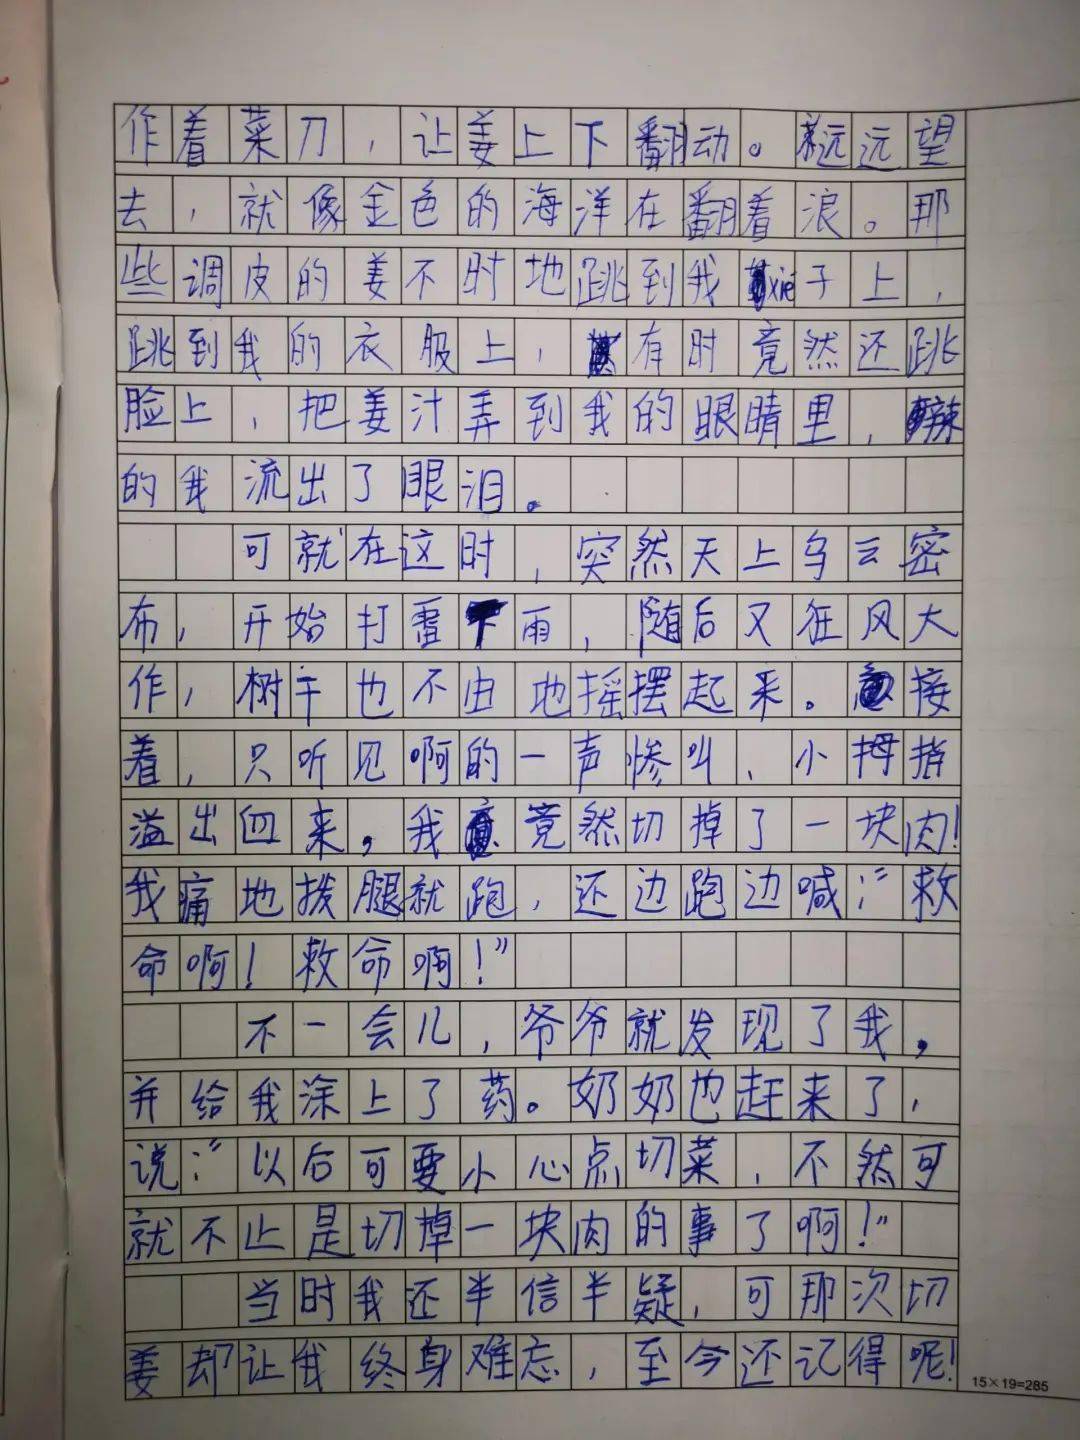 作着菜刀，让姜上下翻动。远远望
去，就像金色的海洋在翻着浪。那
些调皮的姜不时地跳到我xie子上，
跳到我的衣服上，有时竟然还跳
脸上，把姜汁弄到我的眼睛里，辣
的我流出了眼泪。
可就在这时，突然天上乌云密
布，开始打雷下雨，随后又狂风大
作，树干也不由地摇摆起来。接
着，只听见啊的一声惨叫、小拇指
溢出血来，我竟然切掉了一块肉！
我痛地拨腿就跑，还边跑边喊：“救
命啊！救命啊！”
不一会儿，爷爷就发现了我，
并给我涂上了药。奶奶也赶来了，
说：“以后可要小心点切菜，不然可
就不止是切掉一块肉的事了啊！”
当时我还半信半疑，可那次切
姜却让我终身难忘，至今还记得呢！
15×19=285